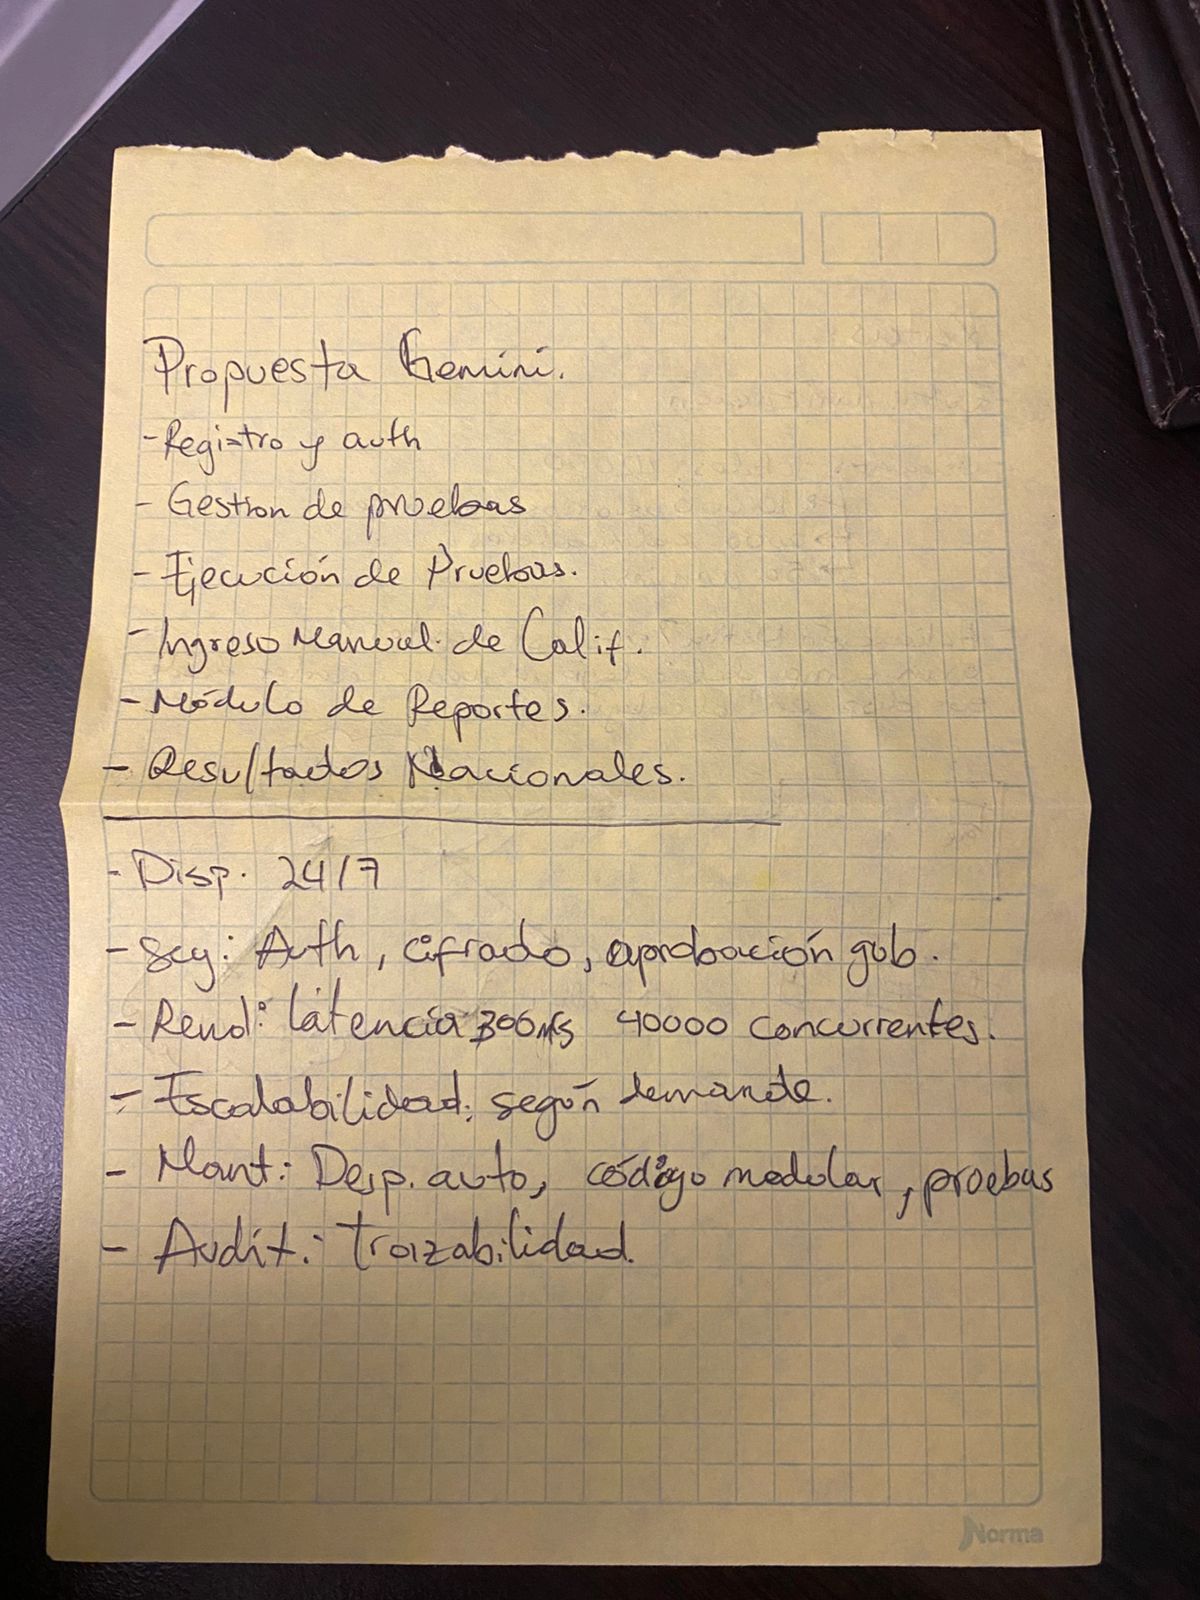 Propuesta Gemini.
- Registro y auth
- Gestion de pruebas
- Ejecución de Pruebas.
- Ingreso Manual de Calif.
- Módulo de Reportes.
- Resultados Nacionales.
- Disp. 24/7
- Seg: Auth, cifrado, aprobación gub.
- Rend: latencia 300ms 40000 concurrentes.
- Escalabilidad: según demanda.
- Mant: Desp. auto, código modular, pruebas
- Audit.: Traizabilidad.
Norma